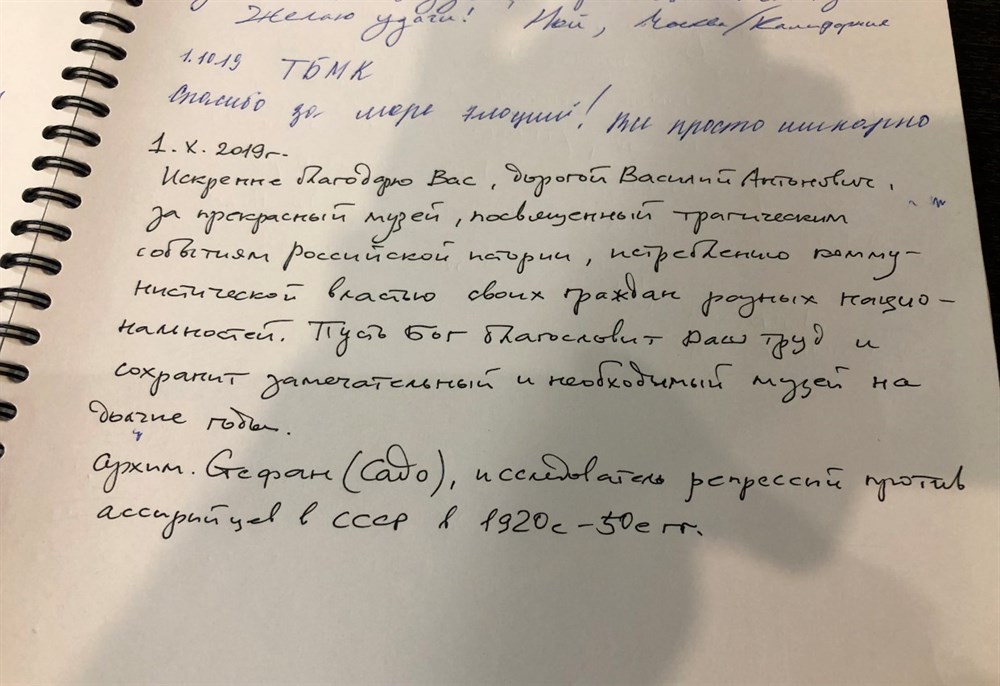 Желаю удачи! Ной, Москва/Калифорния
1.10.19 ТБМК
Спасибо за море эмоций! Вы просто шикарно
1.X.2019г.
Искренне благодарю Вас, дорогой Василий Антонович,
за прекрасный музей, посвященный трагическим
событиям Российской истории, истреблению комму-
нистической властью своих граждан разных нацио-
нальностей. Пусть Бог благословит Ваш труд и
сохранит замечательный и необходимый музей на
долгие годы.
архим. Стефан (Садо), исследователь репрессий против
ассирийцев в СССР в 1920е-50е гг.